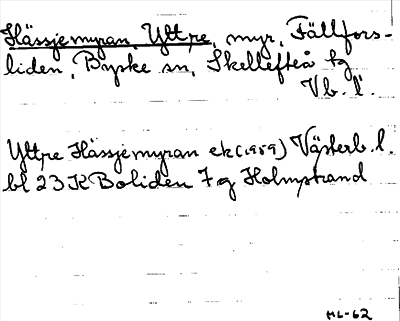 Hässjemyran, Yttre, myr, Fällfors-
liden, Byske sn, Skellefteå tg
Vb. l.
Yttre Hässjemyran ek (1959) Västerb. l.
bl 23 K Boliden 7 g Holmstrand
HL-62